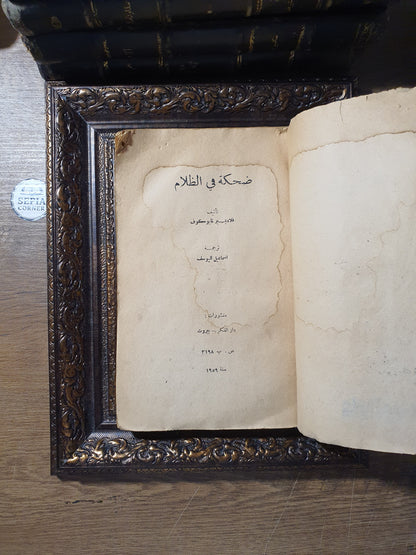 SEPIA
CORNER
ضحكة في الظلام
تأليف
فلاديمير نابوكوف
ترجمة
اسماعيل اليوسف
منشورات :
دار الفكر .. بيروت
ص . ب ٣١٩٨
سنة ١٩٥٩